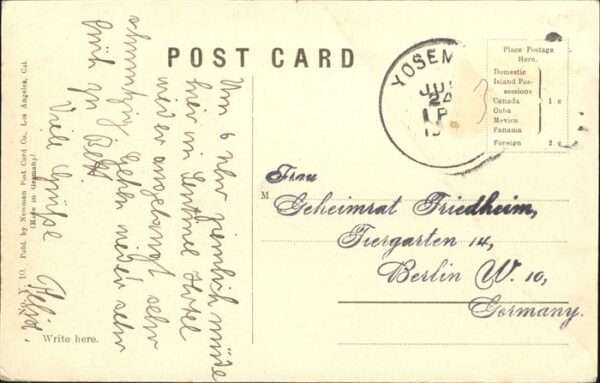 POST CARD
Um 6 Uhr ziemlich müde
hier im Sentinel Hotel
wieder angelangt sehr
schmutzig. Gehen wieder sehr
früh zu Bett.
Viele Grüße
Felix.
Y. 10. Publ. by Newman Post Card Co., Los Angeles, Cal.
(Made in Germany)
Write here.
YOSEM
24
Place Postage
Here.
Domestic
Island Pos-
sessions
Canada 1 c
Cuba
Mexico
Panama
Foreign 2 c
Frau
M
Geheimrat Friedheim,
Tiergarten 14,
Berlin W. 10,
Germany.